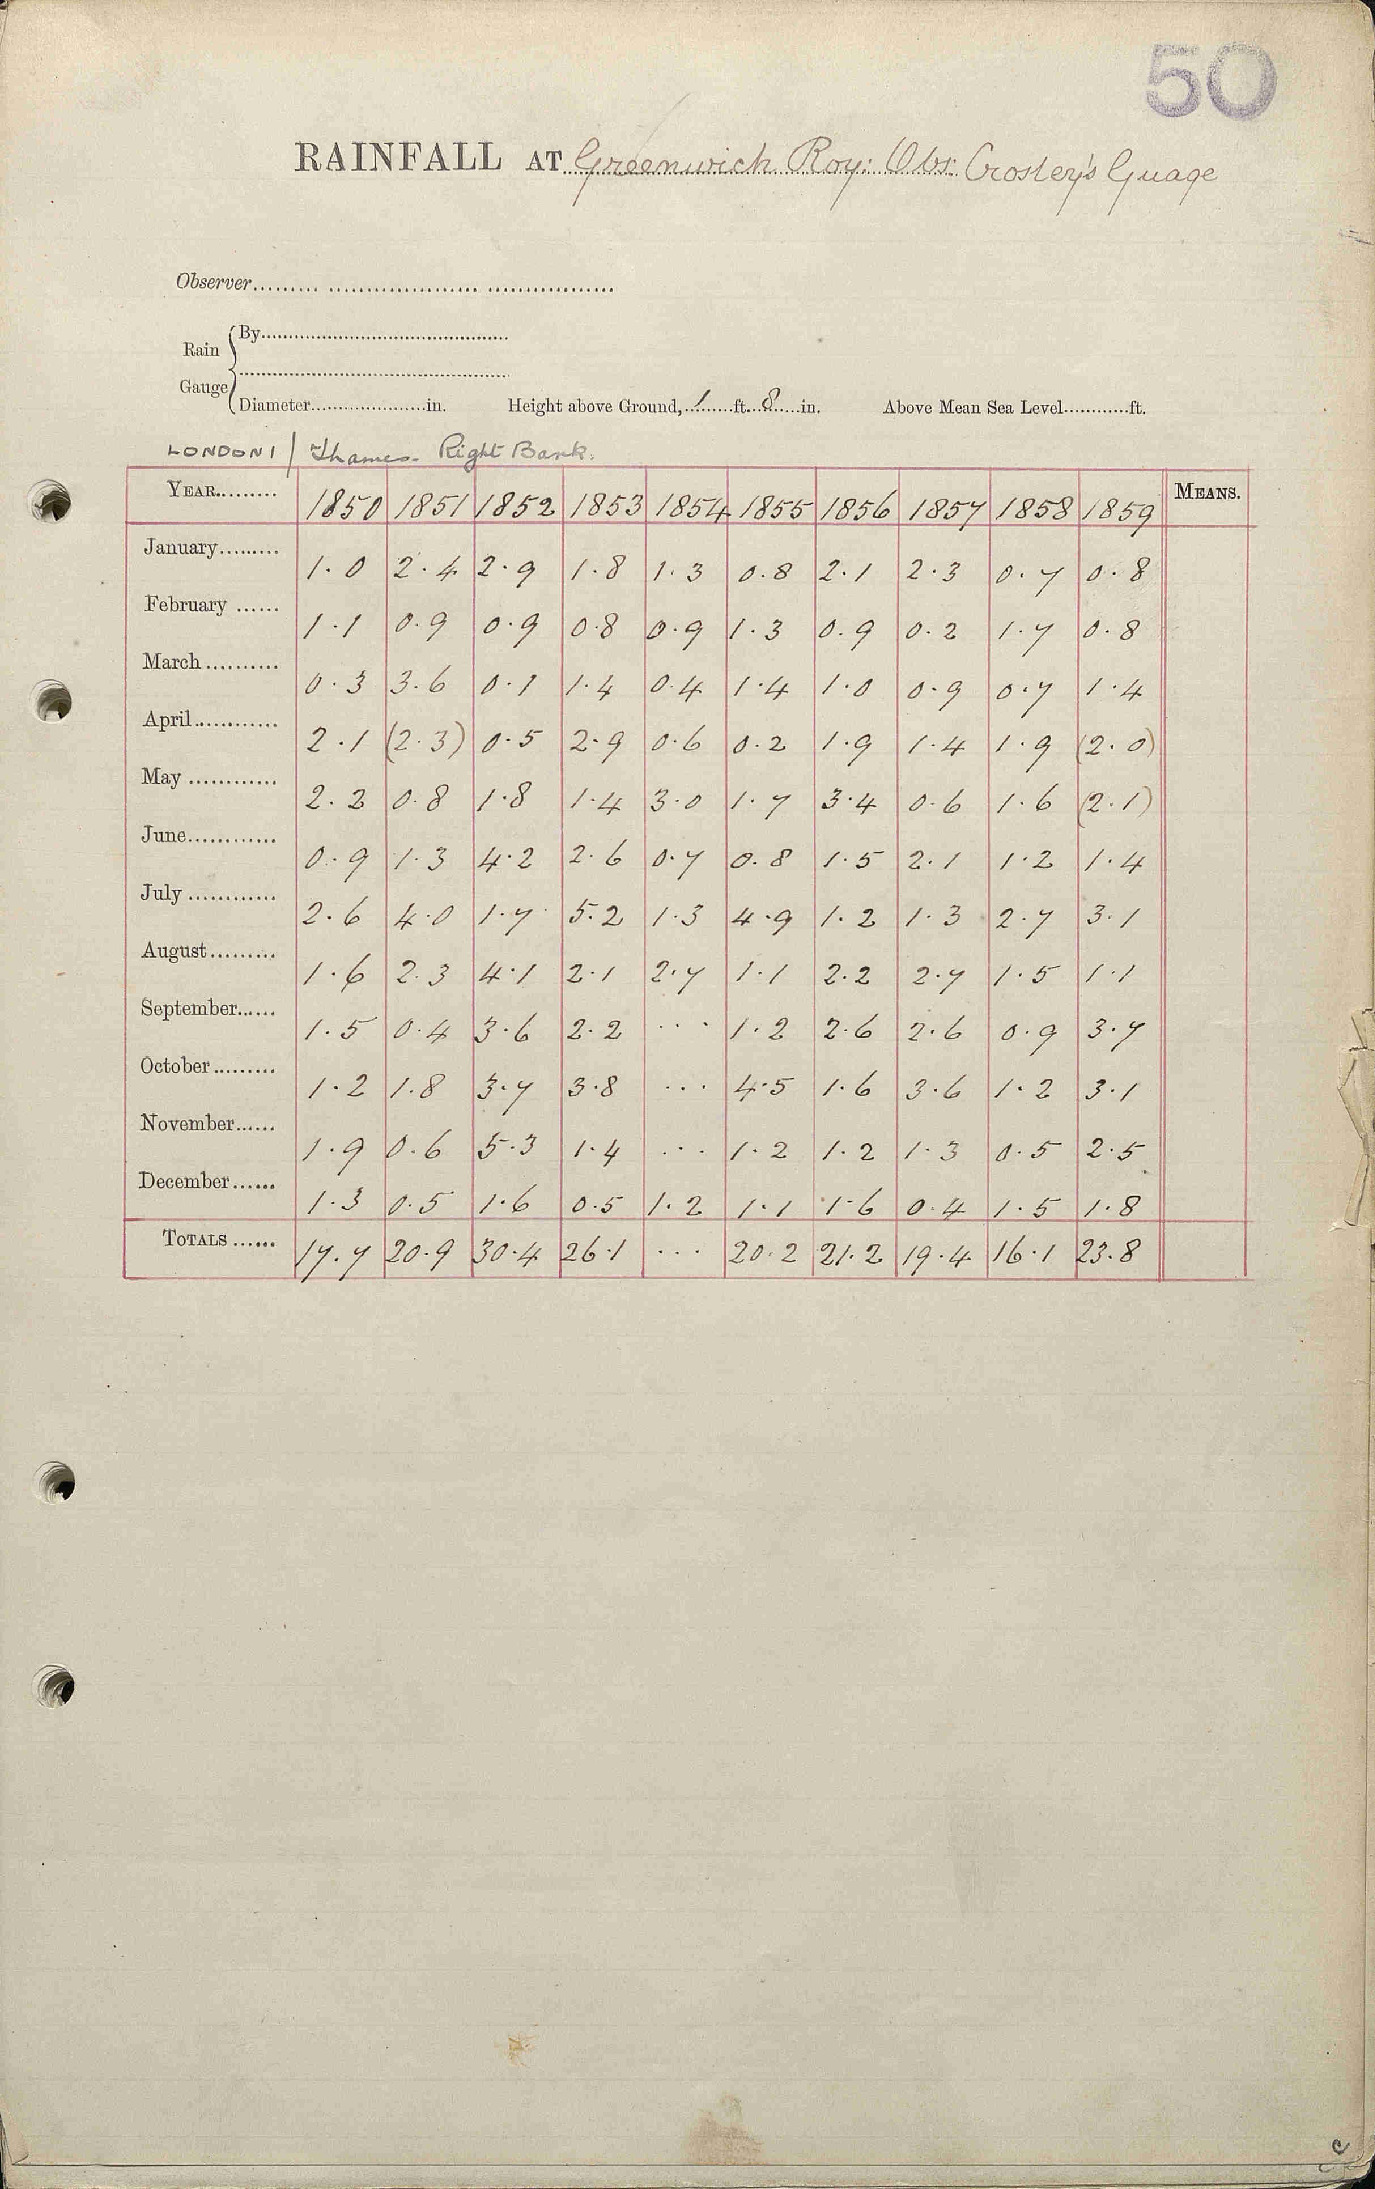 50
RAINFALL AT Greenwich Roy: Obs: Crosley's Guage
Observer
Rain Gauge
By
Diameter in. Height above Ground, 1 ft. 8 in. Above Mean Sea Level ft.
LONDON 1 / Thames. Right Bank.
YEAR 1850 1851 1852 1853 1854 1855 1856 1857 1858 1859 MEANS.
January 1.0 2.4 2.9 1.8 1.3 0.8 2.1 2.3 0.7 0.8
February 1.1 0.9 0.9 0.8 0.9 1.3 0.9 0.2 1.7 0.8
March 0.3 3.6 0.1 1.4 0.4 1.4 1.0 0.9 0.7 1.4
April 2.1 (2.3) 0.5 2.9 0.6 0.2 1.9 1.4 1.9 (2.0)
May 2.2 0.8 1.8 1.4 3.0 1.7 3.4 0.6 1.6 (2.1)
June 0.9 1.3 4.2 2.6 0.7 0.8 1.5 2.1 1.2 1.4
July 2.6 4.0 1.7 5.2 1.3 4.9 1.2 1.3 2.7 3.1
August 1.6 2.3 4.1 2.1 2.7 1.1 2.2 2.7 1.5 1.1
September 1.5 0.4 3.6 2.2 ... 1.2 2.6 2.6 0.9 3.7
October 1.2 1.8 3.7 3.8 ... 4.5 1.6 3.6 1.2 3.1
November 1.9 0.6 5.3 1.4 ... 1.2 1.2 1.3 0.5 2.5
December 1.3 0.5 1.6 0.5 1.2 1.1 1.6 0.4 1.5 1.8
TOTALS 17.7 20.9 30.4 26.1 ... 20.2 21.2 19.4 16.1 23.8